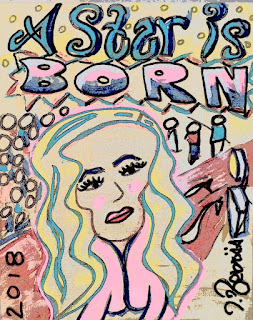 A Star is
BORN
2018